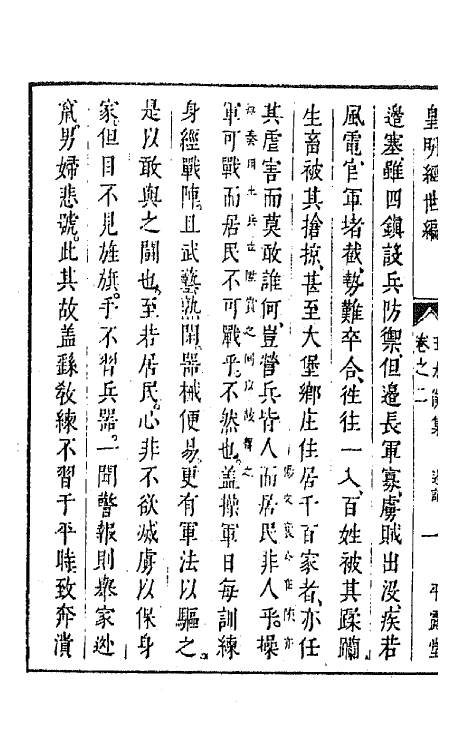 皇明經世編
卷之二
一
平露堂
邊塞雖四鎮設兵防禦但邊長軍寡虜賊出沒疾若
風電官軍堵截勢難卒合徃徃一入百姓被其蹂躪
生畜被其搶掠甚至大堡鄉庄住居千百家者亦任
其虐害而莫敢誰何豈營兵皆人而居民非人乎操
軍可戰而居民不可戰乎不然也蓋操軍日每訓練
身經戰陣且武藝熟閑器械便易更有軍法以驅之
是以敢與之鬭也至若居民心非不欲滅虜以保身
家但目不見旌旗手不習兵器一聞警報則舉家逃
竄男婦悲號此其故盖繇教練不習于平時致奔潰